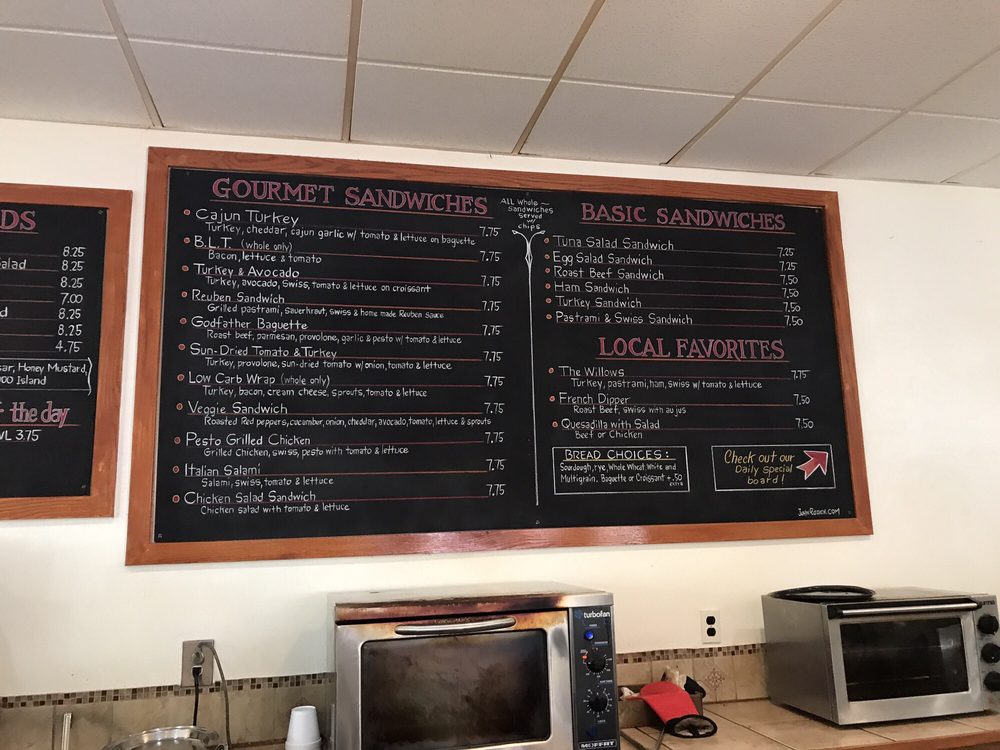 DS
8.25
alad 8.25
8.25
7.00
d 8.25
8.25
4.75
sar, Honey Mustard,
000 Island
f the day
WL 3.75
GOURMET SANDWICHES
Cajun Turkey 7.75
Turkey, cheddar, cajun garlic w/ tomato & lettuce on baguette
B.L.T. (whole only) 7.75
Bacon, lettuce & tomato
Turkey & Avocado 7.75
Turkey, avocado, swiss, tomato & lettuce on croissant
Reuben Sandwich 7.75
Grilled pastrami, sauerkraut, swiss & home made Reuben sauce
Godfather Baguette 7.75
Roast beef, parmesan, provolone, garlic & pesto w/ tomato & lettuce
Sun-Dried Tomato & Turkey 7.75
Turkey, provolone, sun-dried tomato w/ onion, tomato & lettuce
Low Carb Wrap (whole only) 7.75
Turkey, bacon, cream cheese, sprouts, tomato & lettuce
Veggie Sandwich 7.75
Roasted Red peppers, cucumber, onion, cheddar, avocado, tomato, lettuce & sprouts
Pesto Grilled Chicken 7.75
Grilled Chicken, swiss, pesto with tomato & lettuce
Italian Salami 7.75
Salami, swiss, tomato & lettuce
Chicken Salad Sandwich 7.75
Chicken salad with tomato & lettuce
ALL Whole
Sandwiches
Served
w/
chips
BASIC SANDWICHES
Tuna Salad Sandwich 7.25
Egg Salad Sandwich 7.25
Roast Beef Sandwich 7.50
Ham Sandwich 7.50
Turkey Sandwich 7.50
Pastrami & Swiss Sandwich 7.50
LOCAL FAVORITES
The Willows 7.75
Turkey, pastrami, ham, swiss w/ tomato & lettuce
French Dipper 7.50
Roast Beef, swiss with au jus
Quesadilla with Salad 7.50
Beef or Chicken
BREAD CHOICES:
Sourdough, rye, Whole Wheat, White and
Multigrain. Baguette or Croissant + .50
extra
Check out our
Daily Special
board!
turbofan
MOFFAT